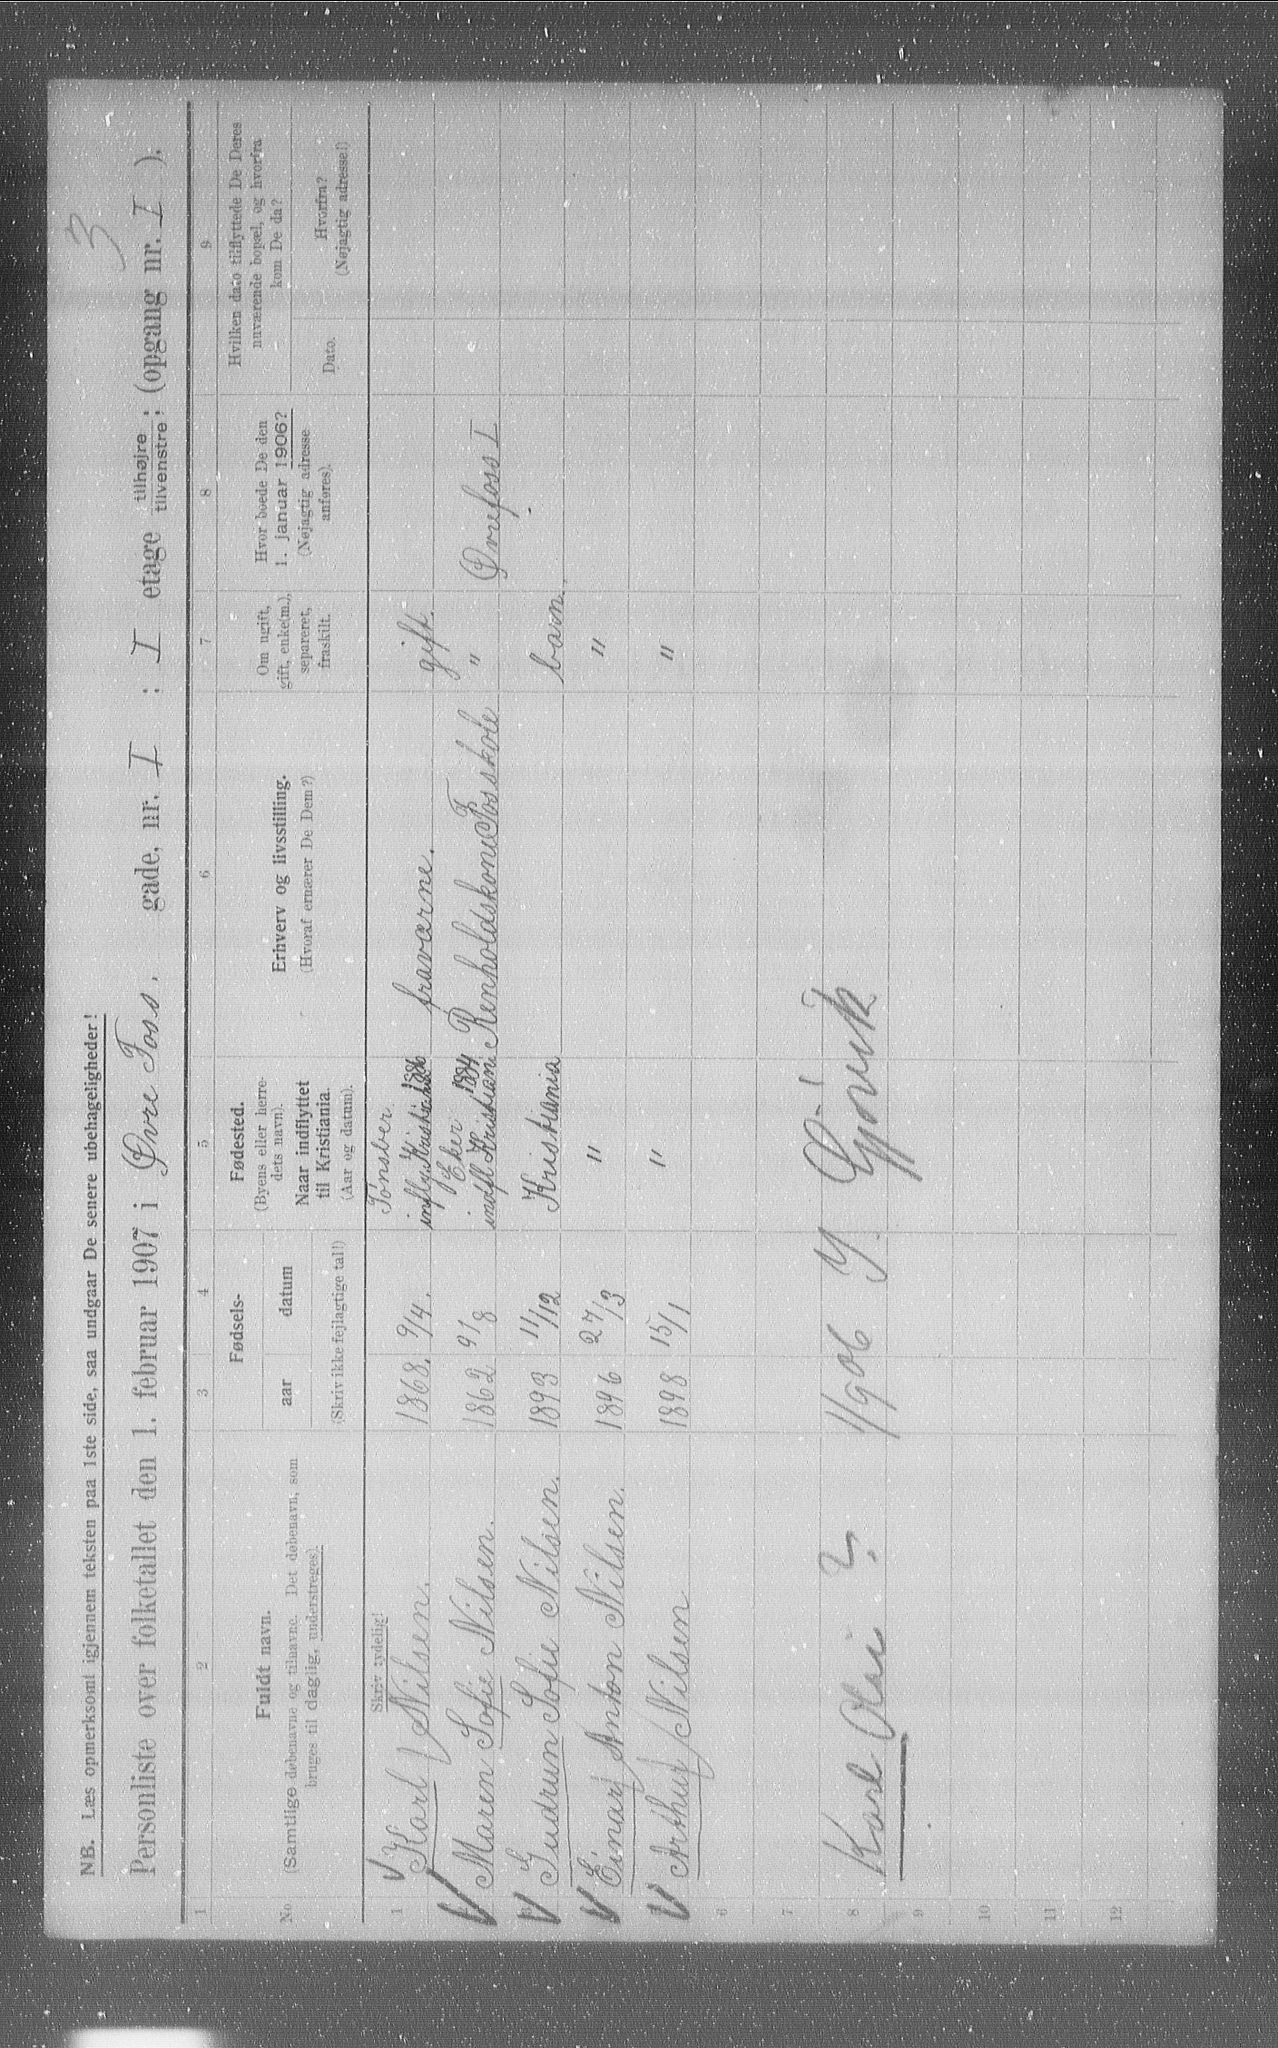 3
NB. Læs opmerksomt igjennem teksten paa 1ste side, saa undgaar De senere ubehageligheder!
Personliste over folketallet den 1. februar 1907 i Øvre Foss. gade, nr. I : I etage tilhøjre tilvenstre ; (opgang nr. I ).
1 2 3 4 5 6 7 8 9
No.
Fuldt navn.
(Samtlige døbenavne og tilnavne. Det døbenavn, som
bruges til daglig, understreges).
Fødsels-
aar datum
(Skriv ikke fejlagtige tal!)
Fødested.
(Byens eller herre-
dets navn).
Naar indflyttet
til Kristiania.
(Aar og datum).
Erhverv og livsstilling.
(Hvoraf ernærer De Dem?)
Om ugift,
gift, enke(m.),
separeret,
fraskilt.
Hvor boede De den
1. januar 1906?
(Nøjagtig adresse
anføres).
Hvilken dato tilflyttede De Deres
nuværende bopæl, og hvorfra
kom De da?
Dato.
Hvorfra?
(Nøjagtig adresse!)
Skriv tydelig!
1 Karl Nilsen. 1868. 9/4. Tønsber. infly. Kristiania 1886 fraværne. gift.
Maren Sofie Nilsen. 1862 9/8 Eker indfl Kristiani 1884 Renholdskone Fosskole " Øvrefoss I
3 Gudrun Sofie Nilsen. 1893 11/12 Kristiania barn.
Einar Anton Nilsen. 1896 27/3 " "
Arthur Nilsen 1898 15/1 " "
6
7
8 Karl Olai ? 11/9 06 y. Gjøvik
9
10
11
12